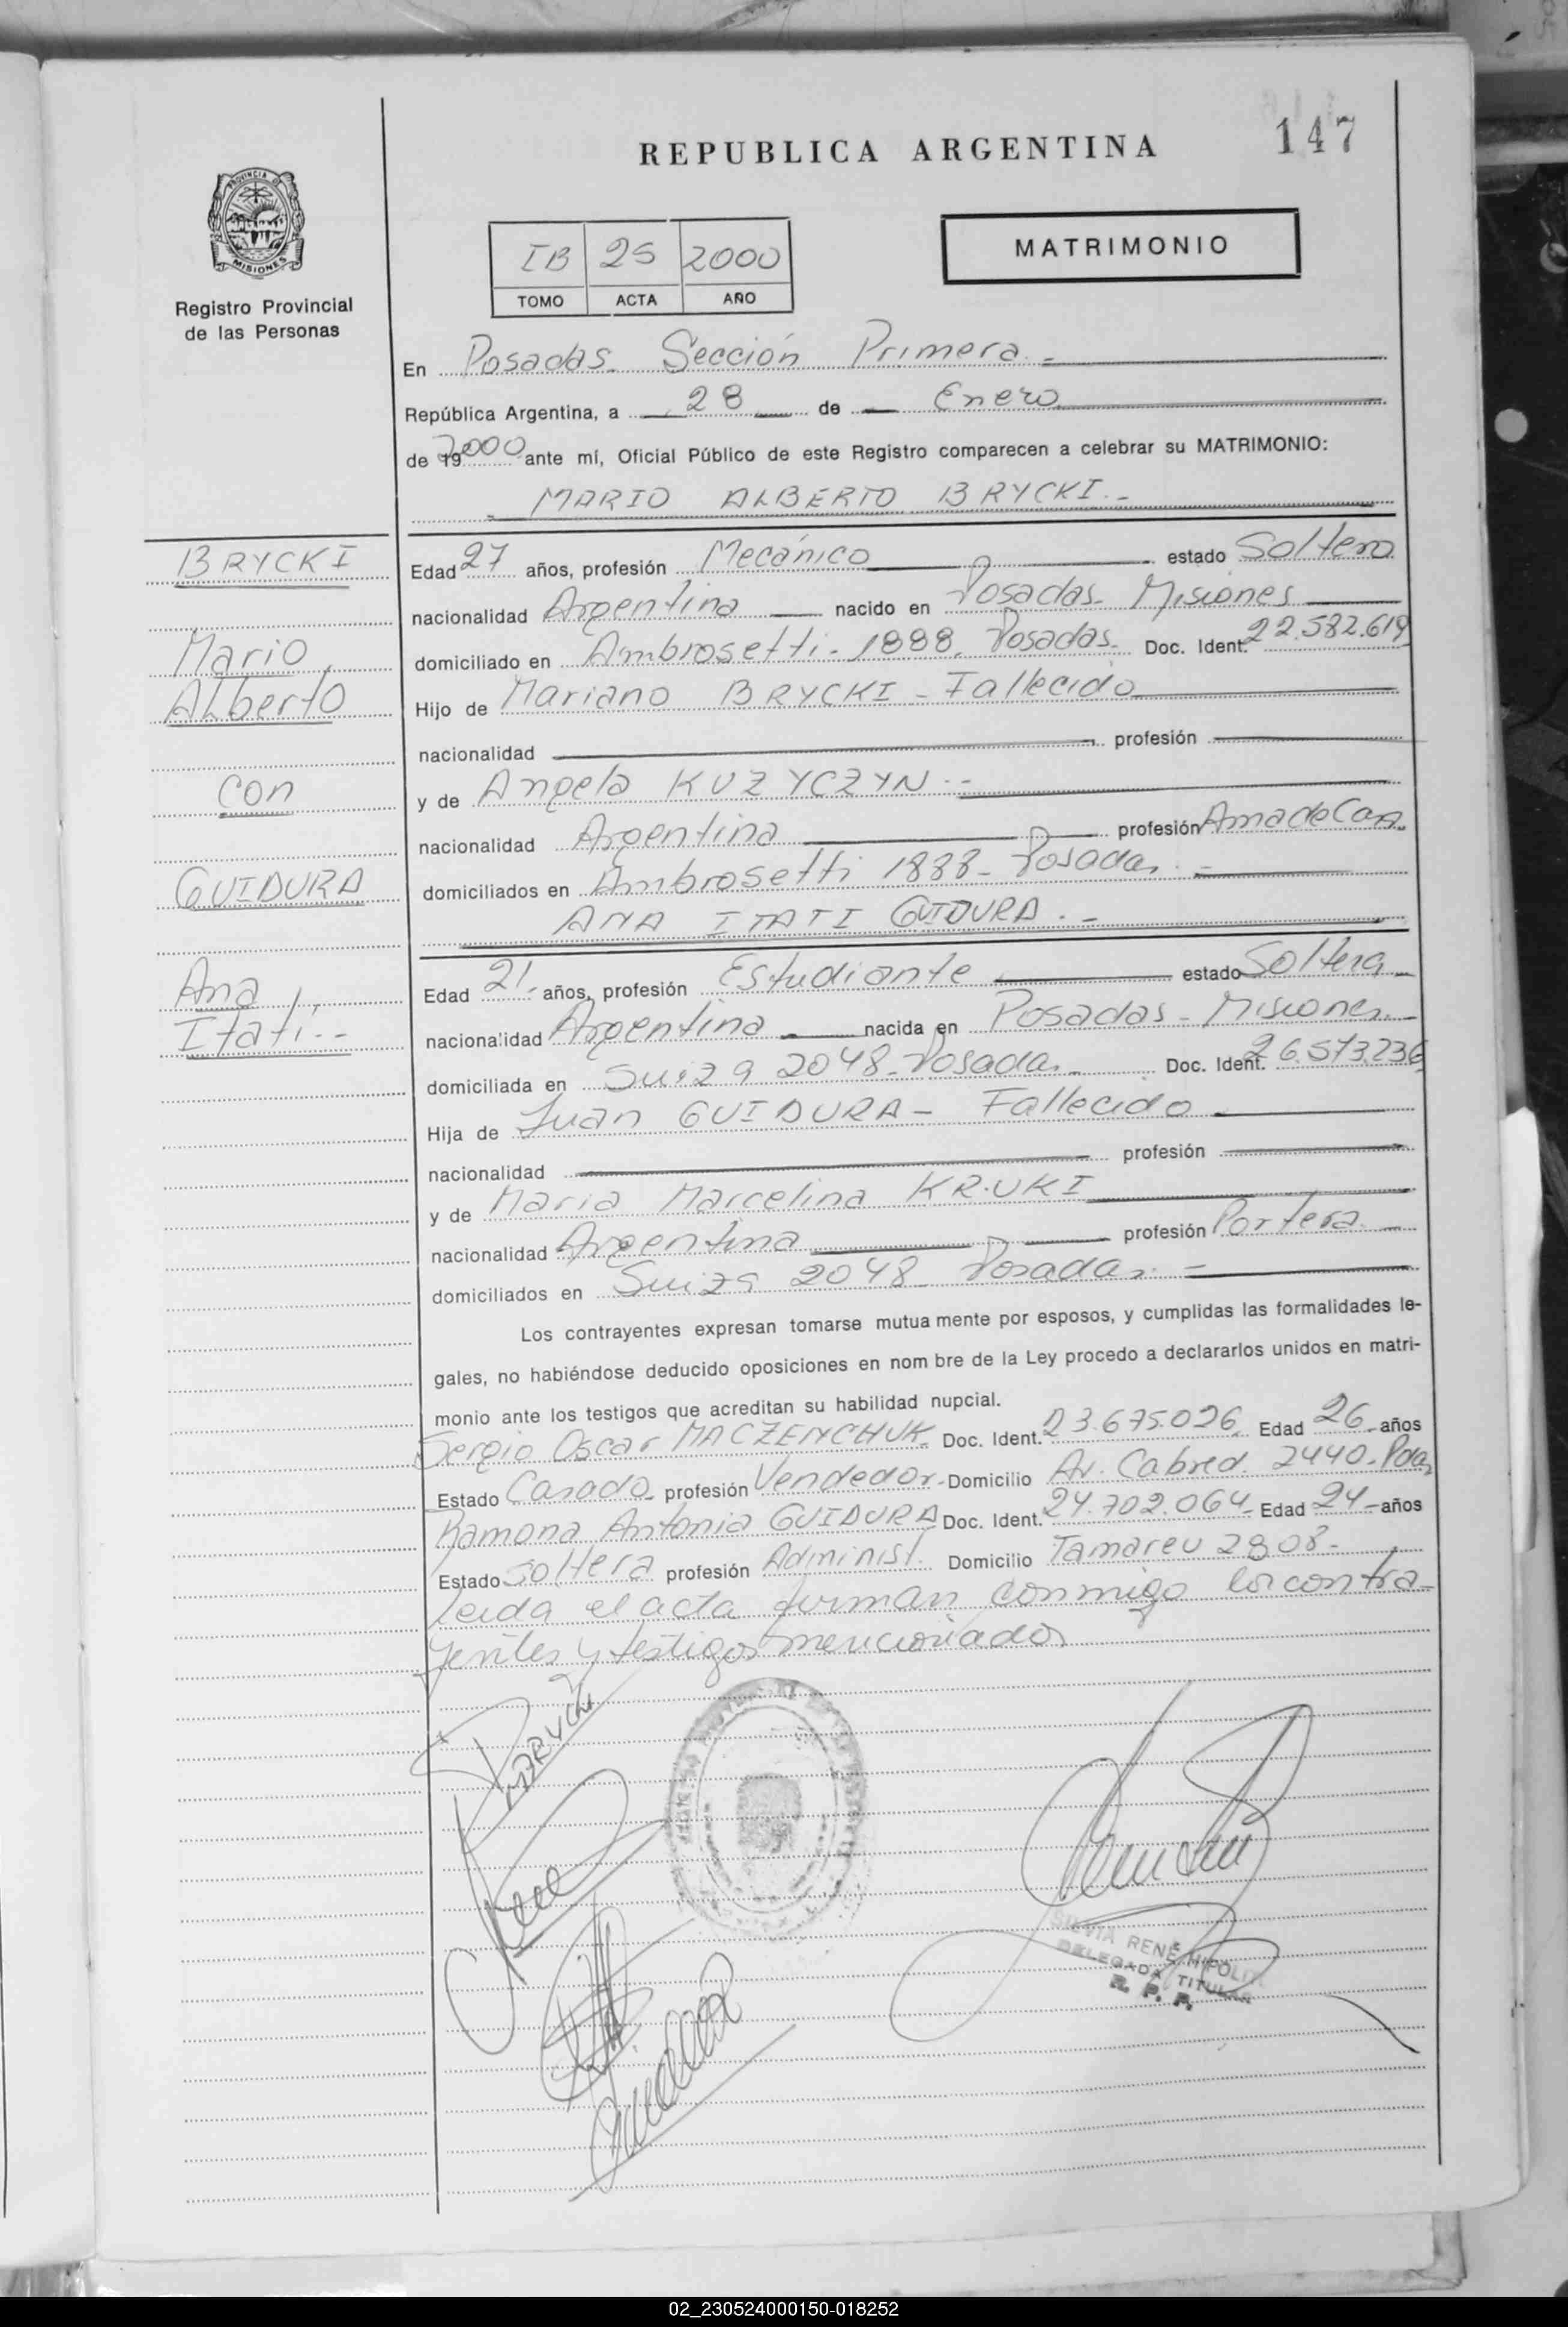 147
REPUBLICA ARGENTINA
PROVINCIA DE
MISIONES
Registro Provincial
de las Personas
IB 25 2000
TOMO ACTA AÑO
MATRIMONIO
En Posadas. Sección Primera.-
República Argentina, a 28 de Enero
de 2000 ante mí, Oficial Público de este Registro comparecen a celebrar su MATRIMONIO:
MARIO ALBERTO BRYCKI.-
BRYCKI
Mario
Alberto
con
GUIDURA
Ana
Itati.-
Edad 27 años, profesión Mecánico estado Soltero
nacionalidad Argentina nacido en Posadas- Misiones
domiciliado en Ambrosetti- 1888. Posadas- Doc. Ident. 22.582.619
Hijo de Mariano BRYCKI - Fallecido
nacionalidad profesión
y de Angela KUZYCZYN.-
nacionalidad Argentina profesión Ama de Casa
domiciliados en Ambrosetti 1888- Posadas.-
ANA ITATI GUIDURA.-
Edad 21- años, profesión Estudiante estado Soltera
nacionalidad Argentina nacida en Posadas- Misiones
domiciliada en Suiza 2048- Posadas- Doc. Ident. 26.573.236
Hija de Juan GUIDURA- Fallecido
nacionalidad profesión
y de Maria Marcelina KRUKI
nacionalidad Argentina profesión Portera
domiciliados en Suiza 2048- Posadas.-
Los contrayentes expresan tomarse mutua mente por esposos, y cumplidas las formalidades le-
gales, no habiéndose deducido oposiciones en nom bre de la Ley procedo a declararlos unidos en matri-
monio ante los testigos que acreditan su habilidad nupcial.
Sergio Oscar MACZENCHUK- Doc. Ident. 23.675.026. Edad 26- años
Estado Casado- profesión Vendedor- Domicilio Av. Cabred. 2440- Pdas
Ramona Antonia GUIDURA Doc. Ident. 24.702.064- Edad 24- años
Estado Soltera profesión Administ. Domicilio Tamareu 2908-
Leida el acta firman conmigo los contra-
yentes y testigos mencionados
BRYCKI
SILVIA RENÉ HIPOLITO
DELEGADA TITULAR
R. P. P.
02_230524000150-018252